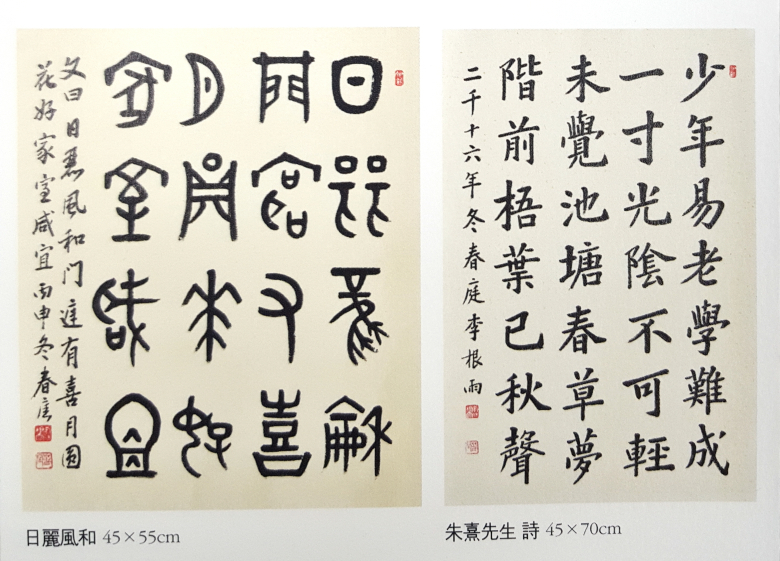 日麗風龢
門庭有喜
月圓花好
家室咸宜
文曰日麗風和门庭有喜月圓
花好家室咸宜丙申冬春庭
日麗風和 45×55cm
少年易老學難成
一寸光陰不可輕
未覺池塘春草夢
階前梧葉已秋聲
二千十六年冬春庭李根雨
朱熹先生 詩 45×70cm